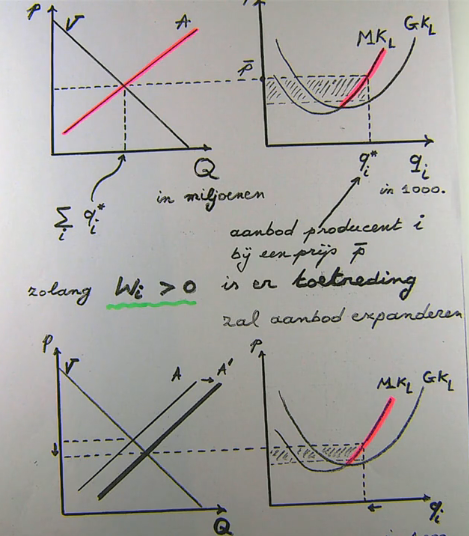 P V A
P MKL GKL
p̄
Q
qi* qi
∑ qi*
i
in miljoenen
in 1000.
aanbod producent i
bij een prijs p̄
zolang Wi > 0 is er toetreding
zal aanbod expanderen
P V A → A'
P MKL GKL
Q
qi